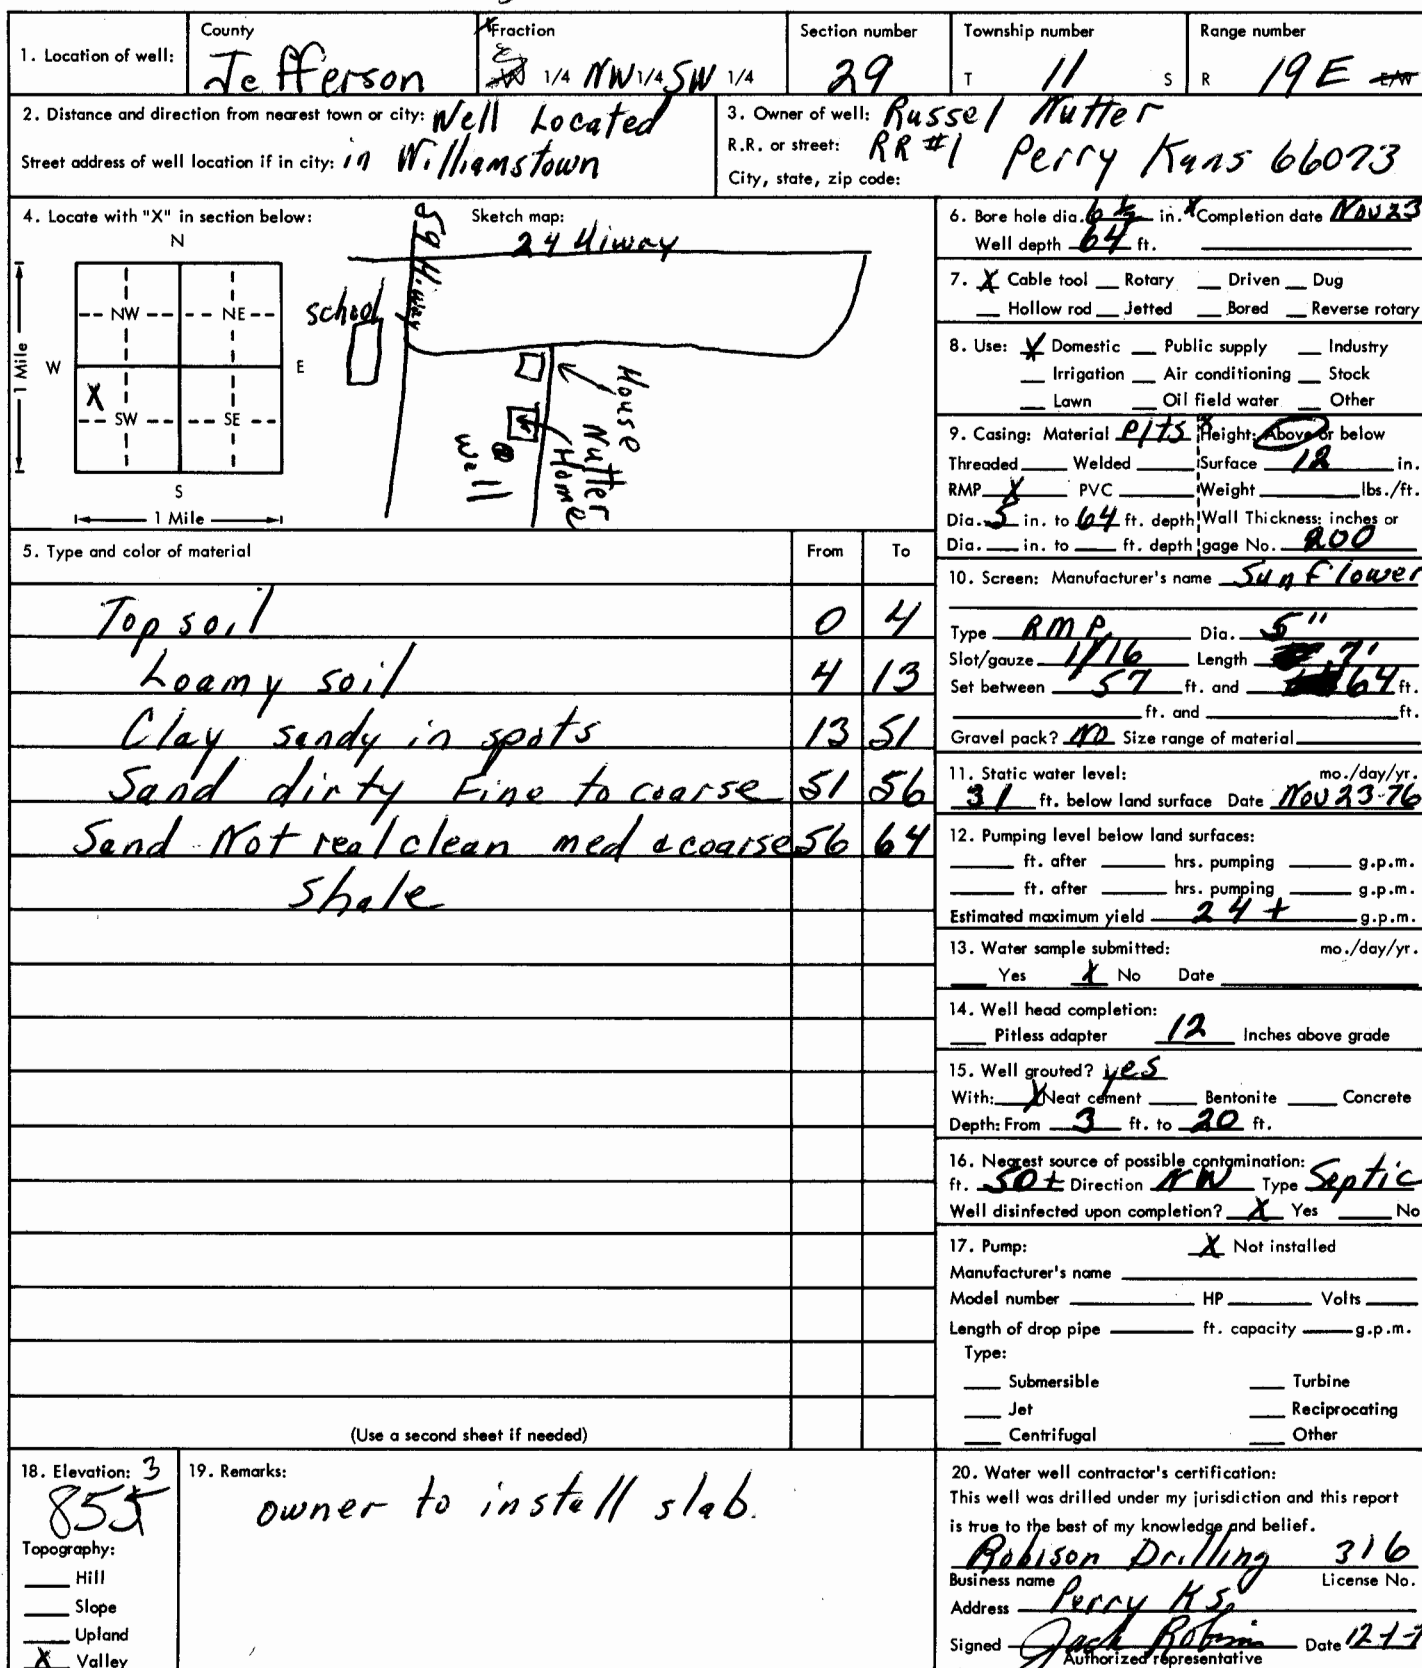 County
Fraction
Section number
Township number
Range number
1. Location of well:
Jefferson
1/4 NW 1/4 SW 1/4
29
T 11 S
R 19 E E/W
2. Distance and direction from nearest town or city: Well Located
Street address of well location if in city: in Williamstown
3. Owner of well: Russel Nutter
R.R. or street: RR #1 Perry Kans 66073
City, state, zip code:
4. Locate with "X" in section below:
N
NW NE
W E
X
SW SE
S
1 Mile
1 Mile
Sketch map:
24 Hiway
59 Hiway
school
House
Nutter
Home
well
5. Type and color of material From To
Top soil 0 4
Loamy soil 4 13
Clay sandy in spots 13 51
Sand dirty Fine to coarse 51 56
Sand Not real clean med & coarse 56 64
Shale
(Use a second sheet if needed)
6. Bore hole dia. 6 1/2 in. Completion date Nov 23
Well depth 64 ft.
7. X Cable tool Rotary Driven Dug
Hollow rod Jetted Bored Reverse rotary
8. Use: X Domestic Public supply Industry
Irrigation Air conditioning Stock
Lawn Oil field water Other
9. Casing: Material Height: Above or below
Threaded Welded Surface 12 in.
RMP X PVC Weight lbs./ft.
Dia. 5 in. to 64 ft. depth Wall Thickness: inches or
Dia. in. to ft. depth gage No. 200
10. Screen: Manufacturer's name Sunflower
Type RMP Dia. 5"
Slot/gauze 1/16 Length 7'
Set between 57 ft. and 64 ft.
ft. and ft.
Gravel pack? No Size range of material
11. Static water level: mo./day/yr.
31 ft. below land surface Date Nov 23-76
12. Pumping level below land surfaces:
ft. after hrs. pumping g.p.m.
ft. after hrs. pumping g.p.m.
Estimated maximum yield 24 + g.p.m.
13. Water sample submitted: mo./day/yr.
Yes X No Date
14. Well head completion:
Pitless adapter 12 Inches above grade
15. Well grouted? yes
With: X Neat cement Bentonite Concrete
Depth: From 3 ft. to 20 ft.
16. Nearest source of possible contamination:
ft. 50± Direction NW Type Septic
Well disinfected upon completion? X Yes No
17. Pump: X Not installed
Manufacturer's name
Model number HP Volts
Length of drop pipe ft. capacity g.p.m.
Type:
Submersible Turbine
Jet Reciprocating
Centrifugal Other
18. Elevation: 3
855
Topography:
Hill
Slope
Upland
X Valley
19. Remarks:
owner to install slab.
20. Water well contractor's certification:
This well was drilled under my jurisdiction and this report
is true to the best of my knowledge and belief.
Robison Drilling 316
Business name License No.
Address Perry KS.
Signed Jack Robison Date 12-1-7
Authorized representative